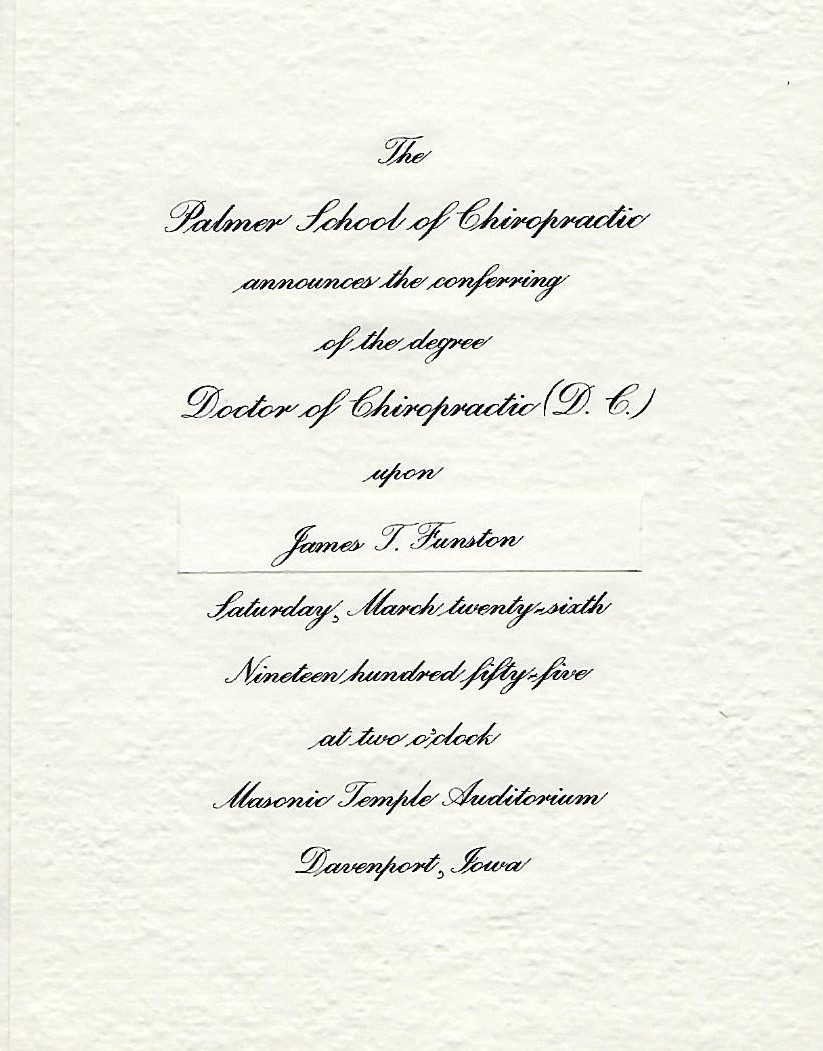 The
Palmer School of Chiropractic
announces the conferring
of the degree
Doctor of Chiropractic (D. C.)
upon
James T. Funston
Saturday, March twenty-sixth
Nineteen hundred fifty-five
at two o'clock
Masonic Temple Auditorium
Davenport, Iowa